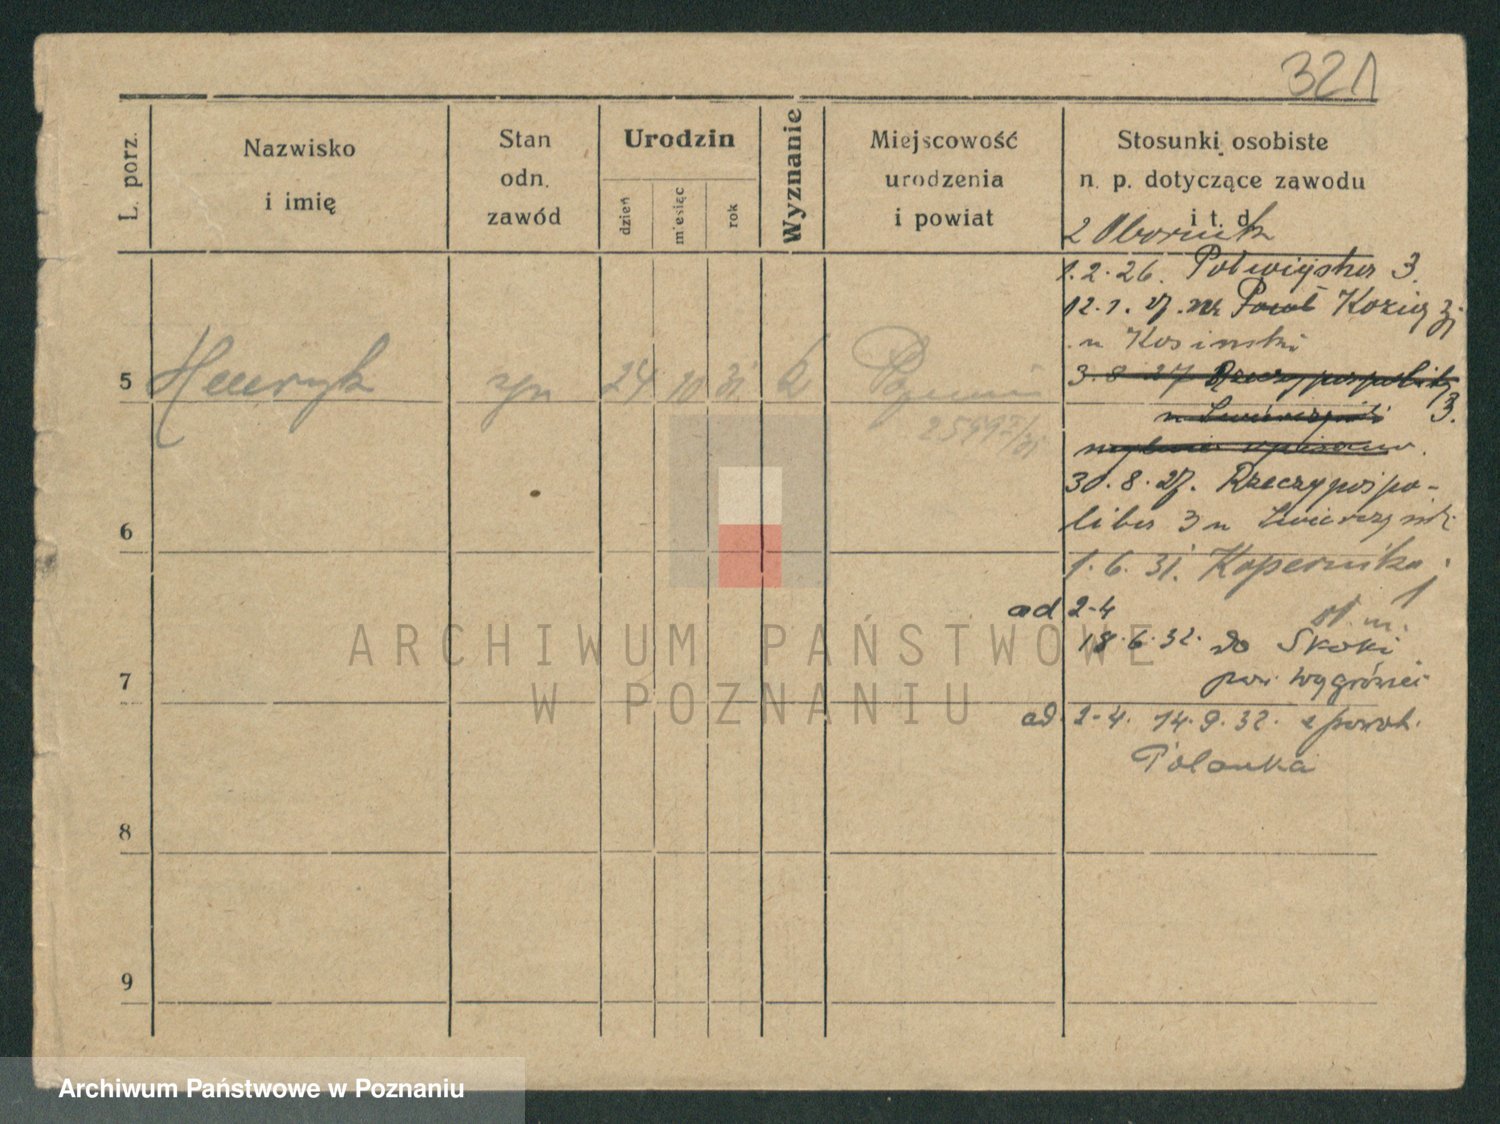 321
L. porz.
Nazwisko
i imię
Stan
odn.
zawód
Urodzin
dzień
miesiąc
rok
Wyznanie
Miejscowość
urodzenia
i powiat
Stosunki osobiste
n. p. dotyczące zawodu
i t. d
2 Obornik
1.2.26. Półwiejska 3.
12.1.27.
u Kosinski
5 Henryk syn 24 10 31 k Poznań
3.8.27 Rzeczypospolitej
3.
30.8.27. Rzeczypospo-
litej 3 u
6
1.6.31. Kopernika
1
ad 2-4
18.6.32. do Skoki
7
pow.
ad. 2-4. 14.9.32. z powrot.
Polanka
8
9
ARCHIWUM PAŃSTWOWE
W POZNANIU
Archiwum Państwowe w Poznaniu